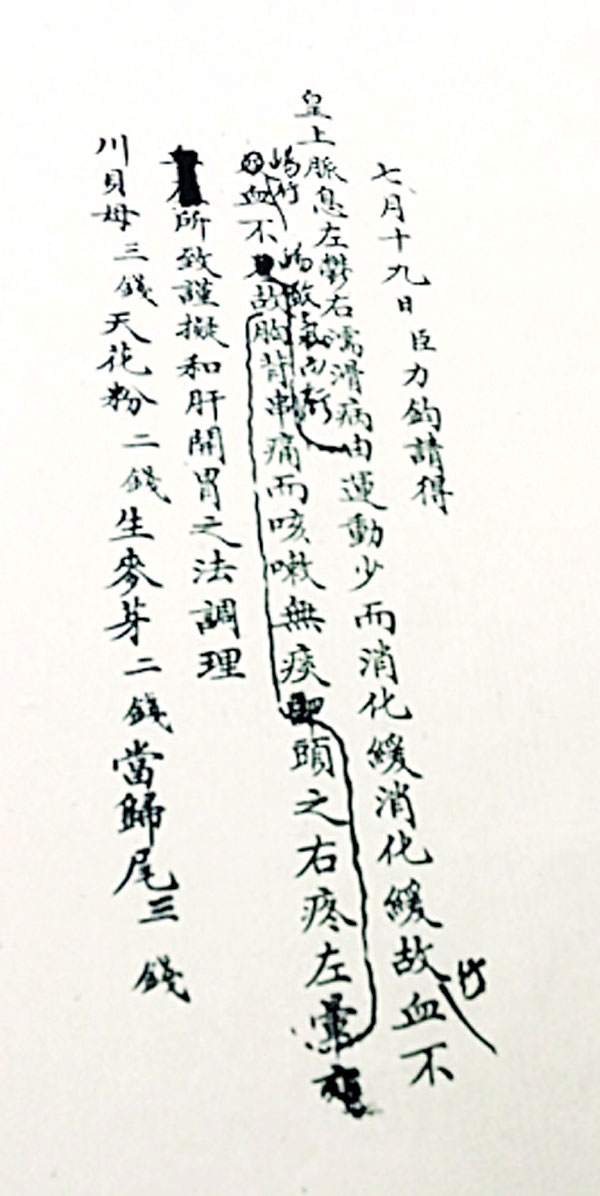 七月十九日臣力鈞請得
皇上脈息左鬱右濡滑病由運動少而消化緩消化緩故血不
血不故胸背串痛而咳嗽無痰頭之右疼左暈
所致謹擬和肝開胃之法調理
川貝母三錢天花粉二錢生麥芽二錢當歸尾三錢